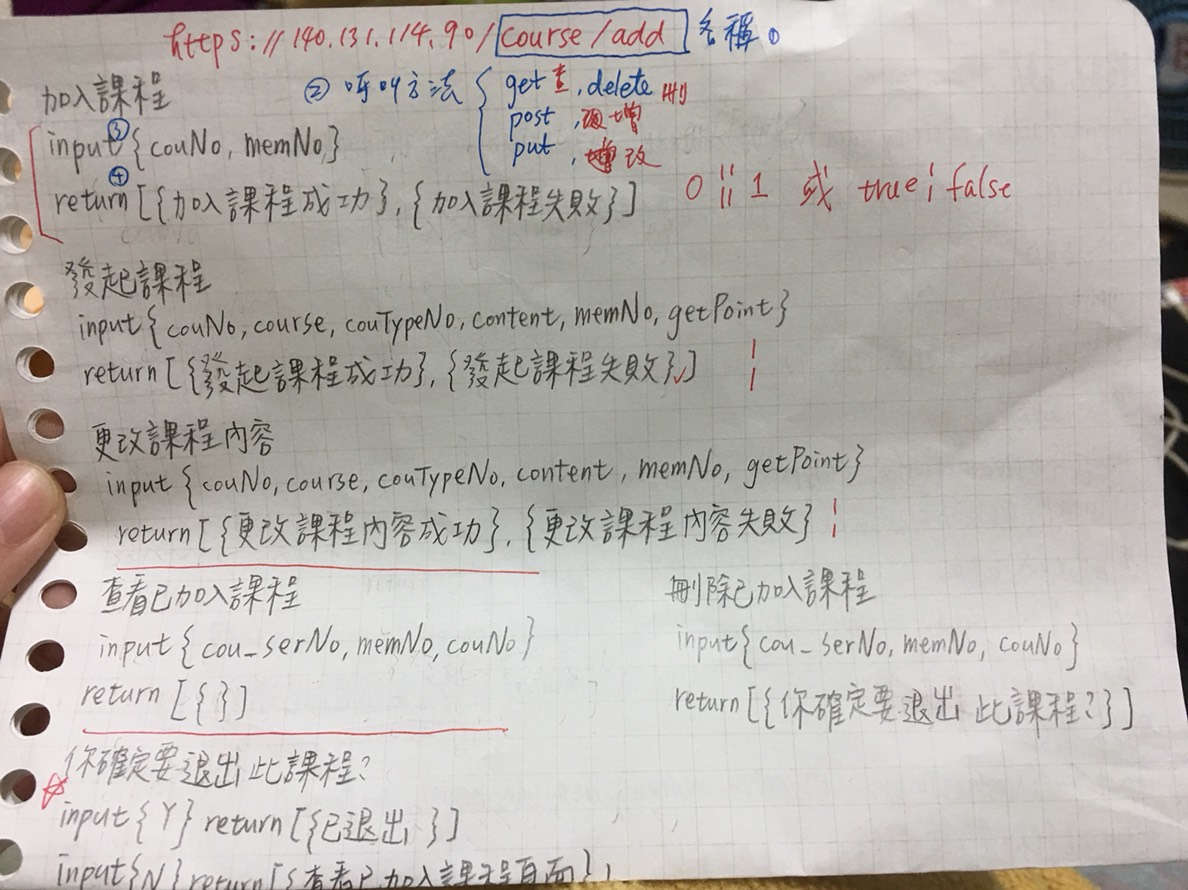 https://140.131.114.90/course/add 名稱①
加入課程
② 呼叫方法 { get 查, delete 刪
post, 增
put, 改
input③{couNo, memNo}
return④[{加入課程成功},{加入課程失敗}]
0 || 1 或 true | false
發起課程
input{couNo, course, couTypeNo, content, memNo, getPoint}
return[{發起課程成功},{發起課程失敗}]
更改課程內容
input{couNo, course, couTypeNo, content, memNo, getPoint}
return[{更改課程內容成功},{更改課程內容失敗}
查看已加入課程
input{cou_serNo, memNo, couNo}
return[{}]
刪除已加入課程
input{cou_serNo, memNo, couNo}
return[{你確定要退出此課程?}]
你確定要退出此課程?
input{Y} return[{已退出}]
input{N} return[{查看已加入課程頁面}